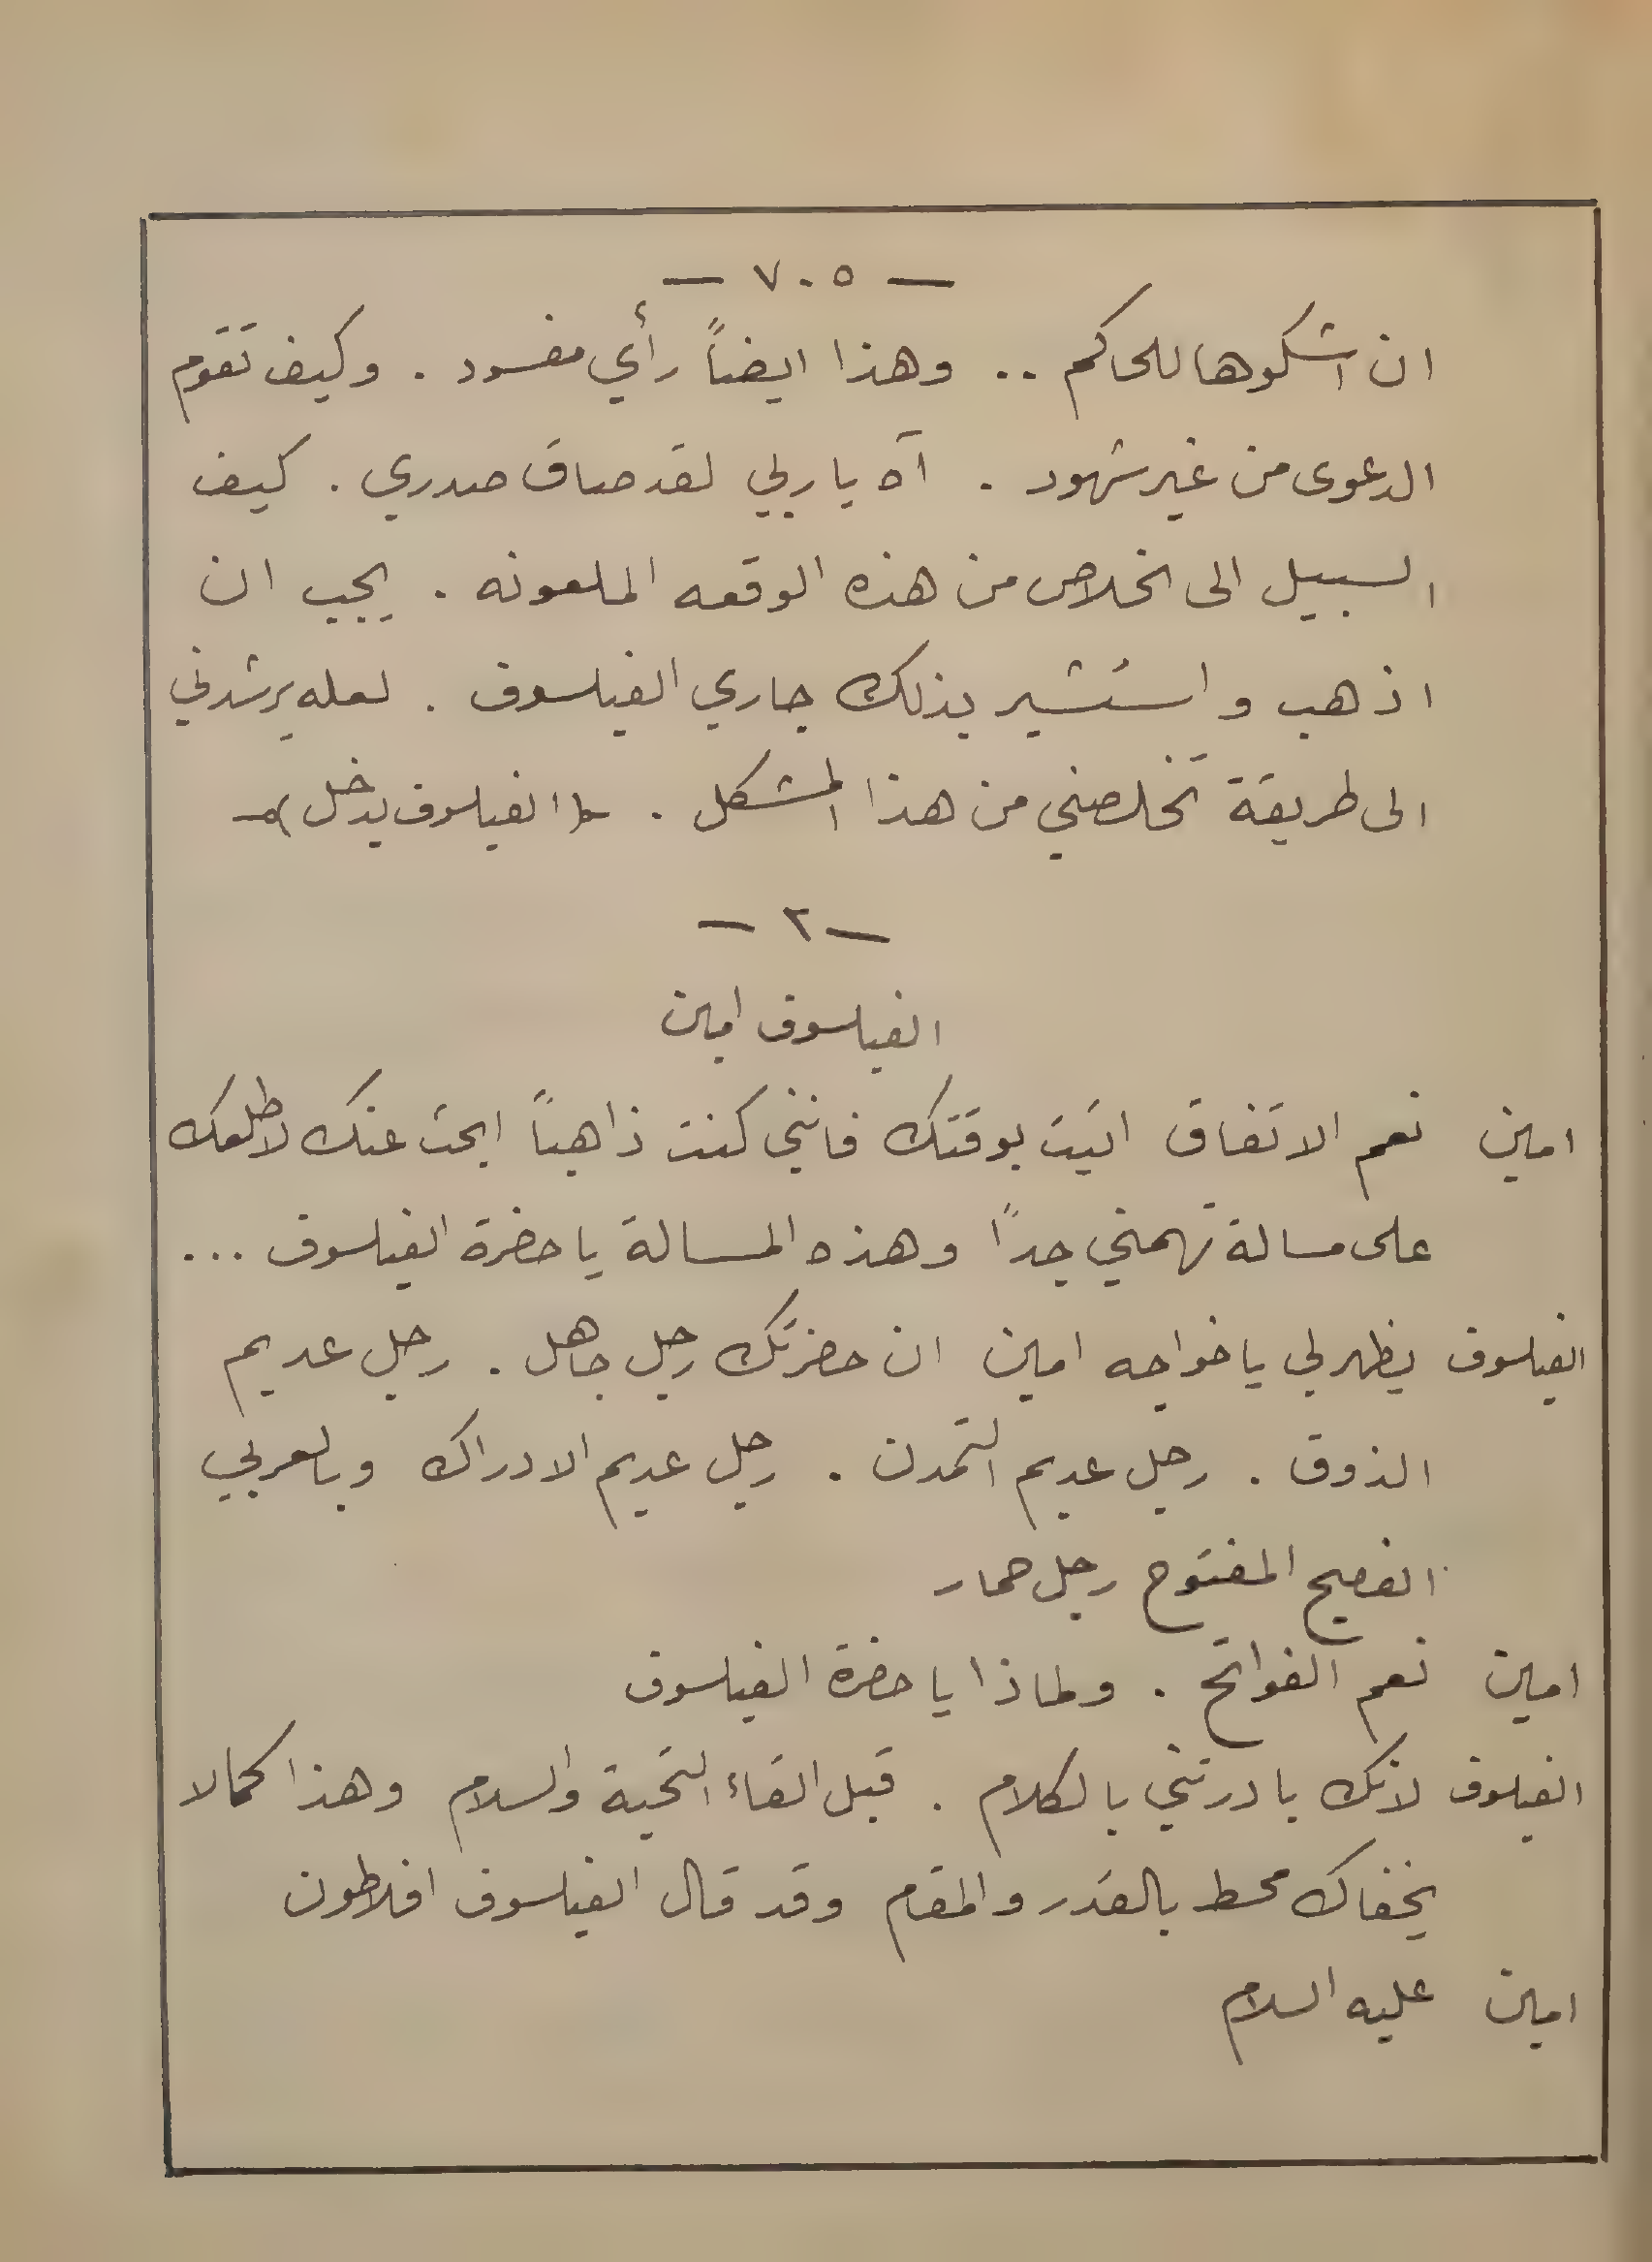 — ٧٠٥ —
ان اشكوها للحاكم .. وهذا ايضاً رأي مفسود . وكيف تقوم
الدعوى من غير شهود . آه يا ربي لقد ضاق صدري . كيف
السبيل الى الخلاص من هذه الوقعه الملعونه . يجب ان
اذهب واستشير بذلك جاري الفيلسوف . لعله يرشدني
الى طريقة تخلصني من هذا المشكل . (الفيلسوف يدخل)
— ٢ —
الفيلسوف امين
امين نعم الاتفاق اتيت بوقتك فانني كنت ذاهباً ابحث عنك لاطلعك
على مسالة تهمني جداً وهذه المسالة يا حضرة الفيلسوف ...
الفيلسوف يظهر لي يا خواجه امين ان حضرتك رجل جاهل . رجل عديم
الذوق . رجل عديم التمدن . رجل عديم الادراك وبالعربي
الفصيح المفتوح رجل حمار
امين نعم الفواتح . ولماذا يا حضرة الفيلسوف
الفيلسوف لانك بادرتني بالكلام . قبل القاء التحية والسلام وهذا كما لا
يخفاك محط بالقدر والمقام وقد قال الفيلسوف افلاطون
امين عليه السلام